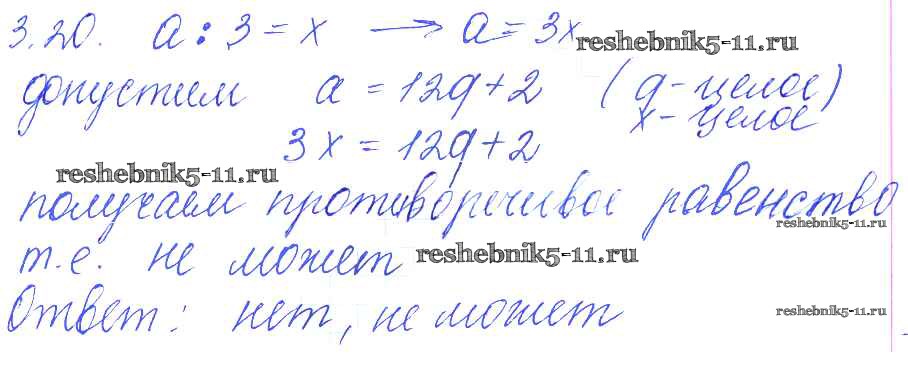 3.20. a : 3 = x → a = 3x
reshebnik5-11.ru
допустим a = 12q + 2 (q - целое)
x - целое
3x = 12q + 2
reshebnik5-11.ru
получаем противоречивое равенство
reshebnik5-11.ru
т.е. не может
reshebnik5-11.ru
Ответ: нет, не может
reshebnik5-11.ru